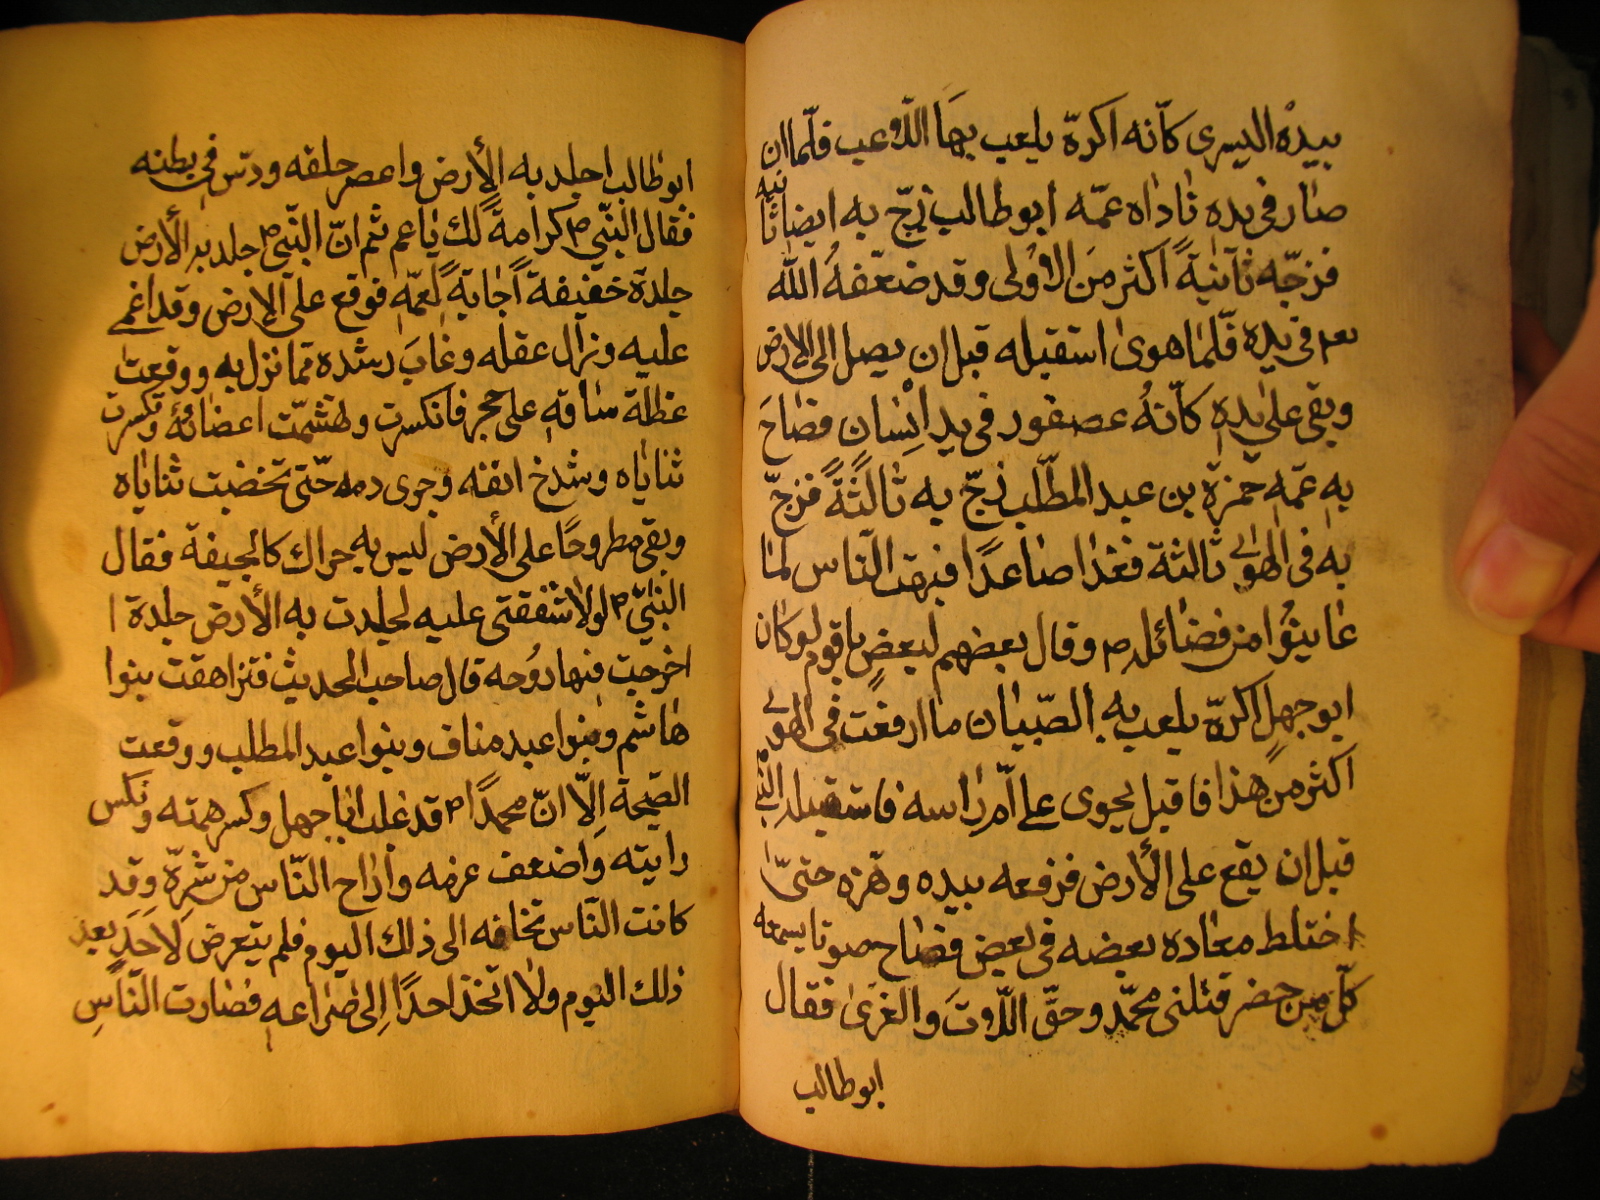 بيده اليسرى كانّه اكرة يلعب بها اللّاعب فلّما ان
صار فى يده ناداه عمّه ابو طالب زجّ به ايضا ثانيه
فزجّه ثانيةً اكثر من الاولى وقد ضعّفه الله
فى يده فلّما هوىٰ استقبله قبل ان يصل الى الارض
وبقى على يده كانّهُ عصفور فى يد انسان فصاح
به عمّه حمزة بن عبد المطّلب زجّ به ثالثةً فزجّ
به فى الهوىٰ ثالثة صاعدًا فبهت النّاس لما
عاينوا من فضائله م وقال بعضهم لبعضٍ يا قوم لو كان
ابو جهلٍ اكرة يلعب به الصّبيان ما ارفعت فى الهوىٰ
اكثر من هذا فاقبل يهوى على اُمّ راسه فاستقبله النّبى
قبل ان يقع على الأرض فرفعه بيده وهزه حتىّ
اختلط بعضه فى بعض فصاح صوتا يسمعه
كلّ من حضر قتلنى محمّد وحقّ اللّات والعزىٰ فقال
ابو طالب
ابو طالب اجلد به الأرض واعصر حلقه ودسّ فى بطنه
فقال النّبى م كرامةً لك يا عم ثم انّ النّبى م جلد به الأرض
جلدة خفيفة اجابةً لعمّه فوقع على الارض وقد اغمى
عليه وزال عقله وغابَ رشده مما نزل به ووقعت
عظلة ساقهِ على حجر فانكسرت وهشّمت اعضائهُ وتكسرت
ثناياه وشدخ انفه وجرى دمه حتّى تخضبت ثناياه
وبقى مطروحًا على الأرض ليس به حراك كالجيفة فقال
النبىّ م لولا شفقتى عليه لجلدت به الأرض جلدة ا
اخرجت فيها روُحه قال صاحب الحديث فتزاهقت بنوا
هاشم وبنوا عبد مناف وبنوا عبد المطلب ووقعت
الصّيحة اِلّا انّ محمدًا م قد غلب ابا جهل وكسر همته ونكس
رايته واضعف عزمه واراح النّاس من شرّه وقد
كانت النّاس تخافه الى ذلك اليوم فلم يتعرض لاحَدٍ بعد
ذلك اليوم ولا اتخذ احدًا اِلى صراعهِ فصارت النّاسِ